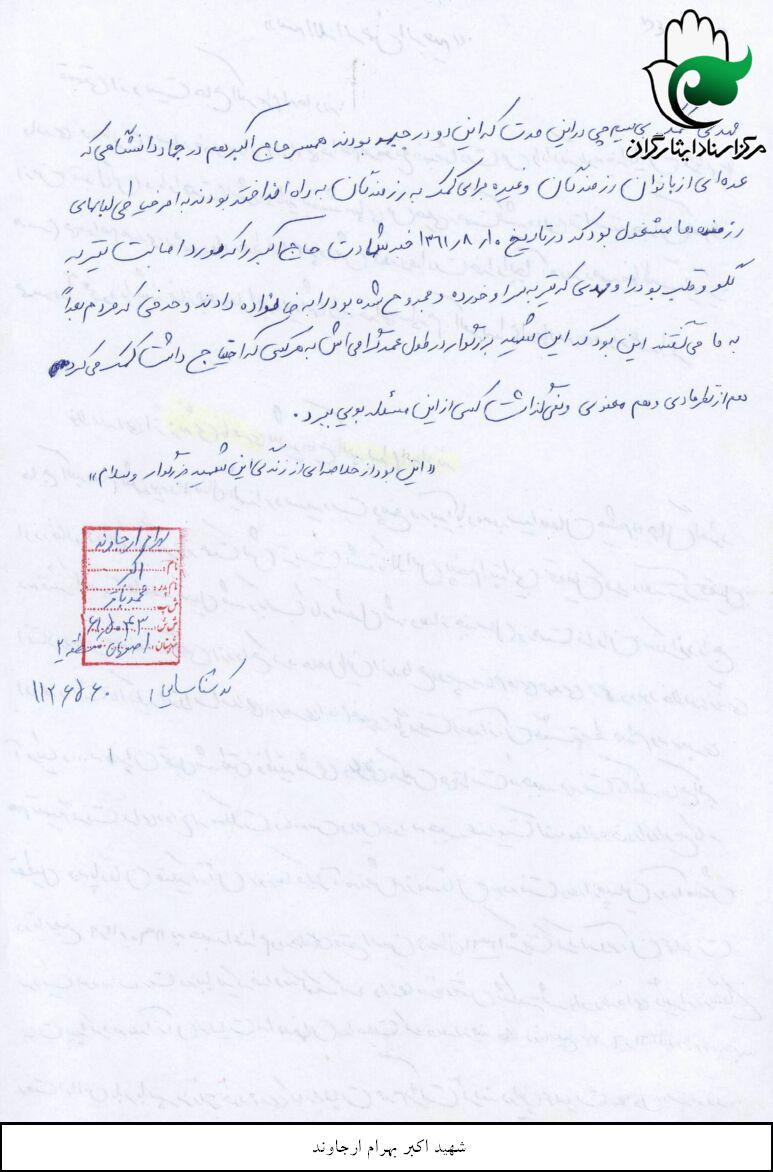 مرکز اسناد ایثارگران
مهدی بی سیم چی در این مدت که این دو در جبهه بودند همسر حاج اکبر هم در جهاد دانشگاهی که
عده‌ای از بانوان رزمندگان وغیره برای کمک به رزمندگان به راه انداخته بودند به امر خیاطی لباسهای
رزمنده ها مشغول بود که در تاریخ ۱۰ر۸ر۱۳۶۱ خبر شهادت حاج اکبر را که مورد اصابت تیر به
گلو و قلب بود را و مهدی که تیر به سر او خورده و مجروح شده بود را به خانواده دادند و حرفی که مردم بعداً
به ما می‌گفتند این بود که این شهید بزرگوار در طول عمر گرامی اش به هر کسی که احتیاج داشت کمک می کرد
هم از نظر مادی وهم معنوی ونمی گذاشت کسی از این مسئله بویی ببرد.
«این بود از خلاصه‌ای از زندگی این شهید بزرگوار والسلام»
بهرام ارجاوند
نام: اکبر
نام پدر: محمدباقر
ش پ:
شهرستان: اصفهان منطقه ۲
کد شناسایی: ۱۱۲۶۵۶۰
شهید اکبر بهرام ارجاوند